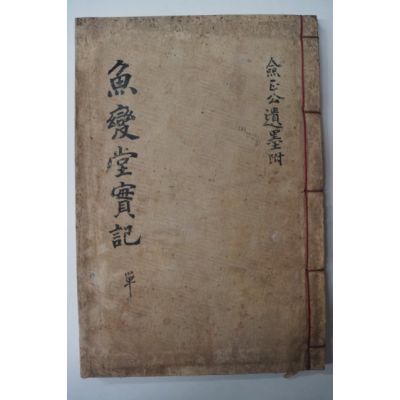 僉正公遺墨附
魚變堂實記
單